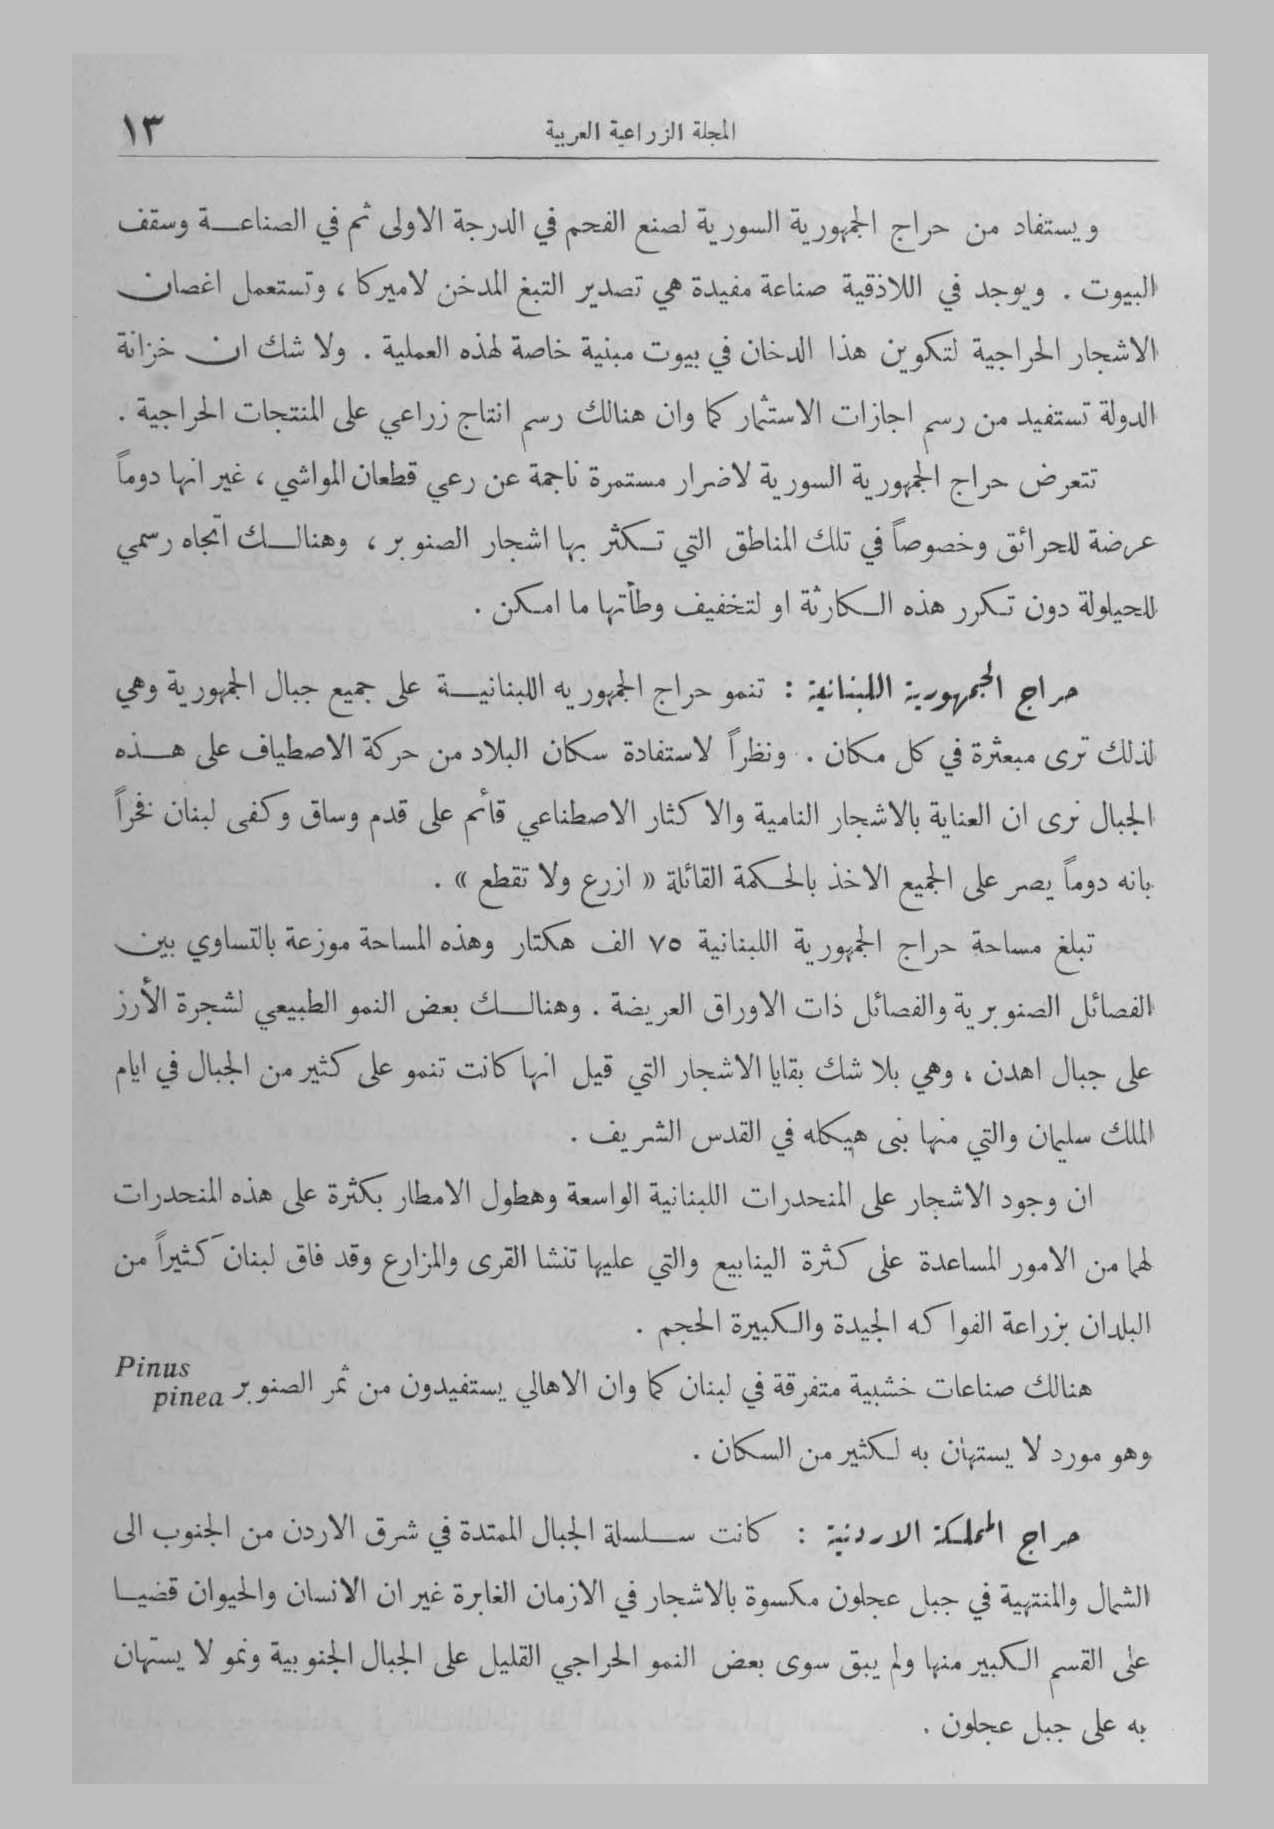 المجلة الزراعية العربية ١٣
ويستفاد من حراج الجمهورية السورية لصنع الفحم في الدرجة الاولى ثم في الصناعة وسقف
البيوت . ويوجد في اللاذقية صناعة مفيدة هي تصدير التبغ المدخن لاميركا ، وتستعمل اغصان
الاشجار الحراجية لتكوين هذا الدخان في بيوت مبنية خاصة لهذه العملية . ولا شك ان خزانة
الدولة تستفيد من رسم اجازات الاستثمار كما وان هنالك رسم انتاج زراعي على المنتجات الحراجية .
تتعرض حراج الجمهورية السورية لاضرار مستمرة ناجمة عن رعي قطعان المواشي ، غير انها دوماً
عرضة للحرائق وخصوصاً في تلك المناطق التي تكثر بها اشجار الصنوبر ، وهنالك اتجاه رسمي
للحيلولة دون تكرر هذه الكارثة او لتخفيف وطأتها ما امكن .
حراج الجمهورية اللبنانية : تنمو حراج الجمهوريه اللبنانية على جميع جبال الجمهورية وهي
لذلك ترى مبعثرة في كل مكان . ونظراً لاستفادة سكان البلاد من حركة الاصطياف على هذه
الجبال نرى ان العناية بالاشجار النامية والاكثار الاصطناعي قائم على قدم وساق وكفى لبنان فخراً
بانه دوماً يصر على الجميع الاخذ بالحكمة القائلة « ازرع ولا تقطع » .
تبلغ مساحة حراج الجمهورية اللبنانية ٧٥ الف هكتار وهذه المساحة موزعة بالتساوي بين
الفصائل الصنوبرية والفصائل ذات الاوراق العريضة . وهنالك بعض النمو الطبيعي لشجرة الأرز
على جبال اهدن ، وهي بلا شك بقايا الاشجار التي قيل انها كانت تنمو على كثير من الجبال في ايام
الملك سليمان والتي منها بنى هيكله في القدس الشريف .
ان وجود الاشجار على المنحدرات اللبنانية الواسعة وهطول الامطار بكثرة على هذه المنحدرات
لهما من الامور المساعدة على كثرة الينابيع والتي عليها تنشا القرى والمزارع وقد فاق لبنان كثيراً من
البلدان بزراعة الفواكه الجيدة والكبيرة الحجم .
هنالك صناعات خشبية متفرقة في لبنان كما وان الاهالي يستفيدون من ثمر الصنوبر Pinus pinea
وهو مورد لا يستهان به لكثير من السكان .
حراج المملكة الاردنية : كانت سلسلة الجبال الممتدة في شرق الاردن من الجنوب الى
الشمال والمنتهية في جبل عجلون مكسوة بالاشجار في الازمان الغابرة غير ان الانسان والحيوان قضيا
على القسم الكبير منها ولم يبق سوى بعض النمو الحراجي القليل على الجبال الجنوبية ونمو لا يستهان
به على جبل عجلون .